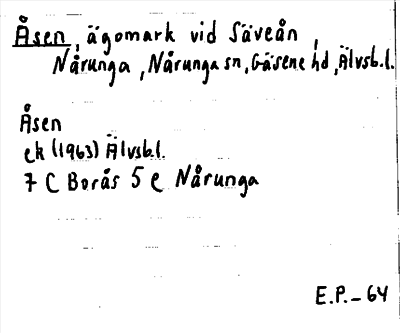 Åsen, ägomark vid Säveån,
Nårunga, Nårunga sn, Gäsene hd, Älvsb.l.
Åsen
ek (1963) Älvsb.l.
7 C Borås 5 e Nårunga
E.P. - 64